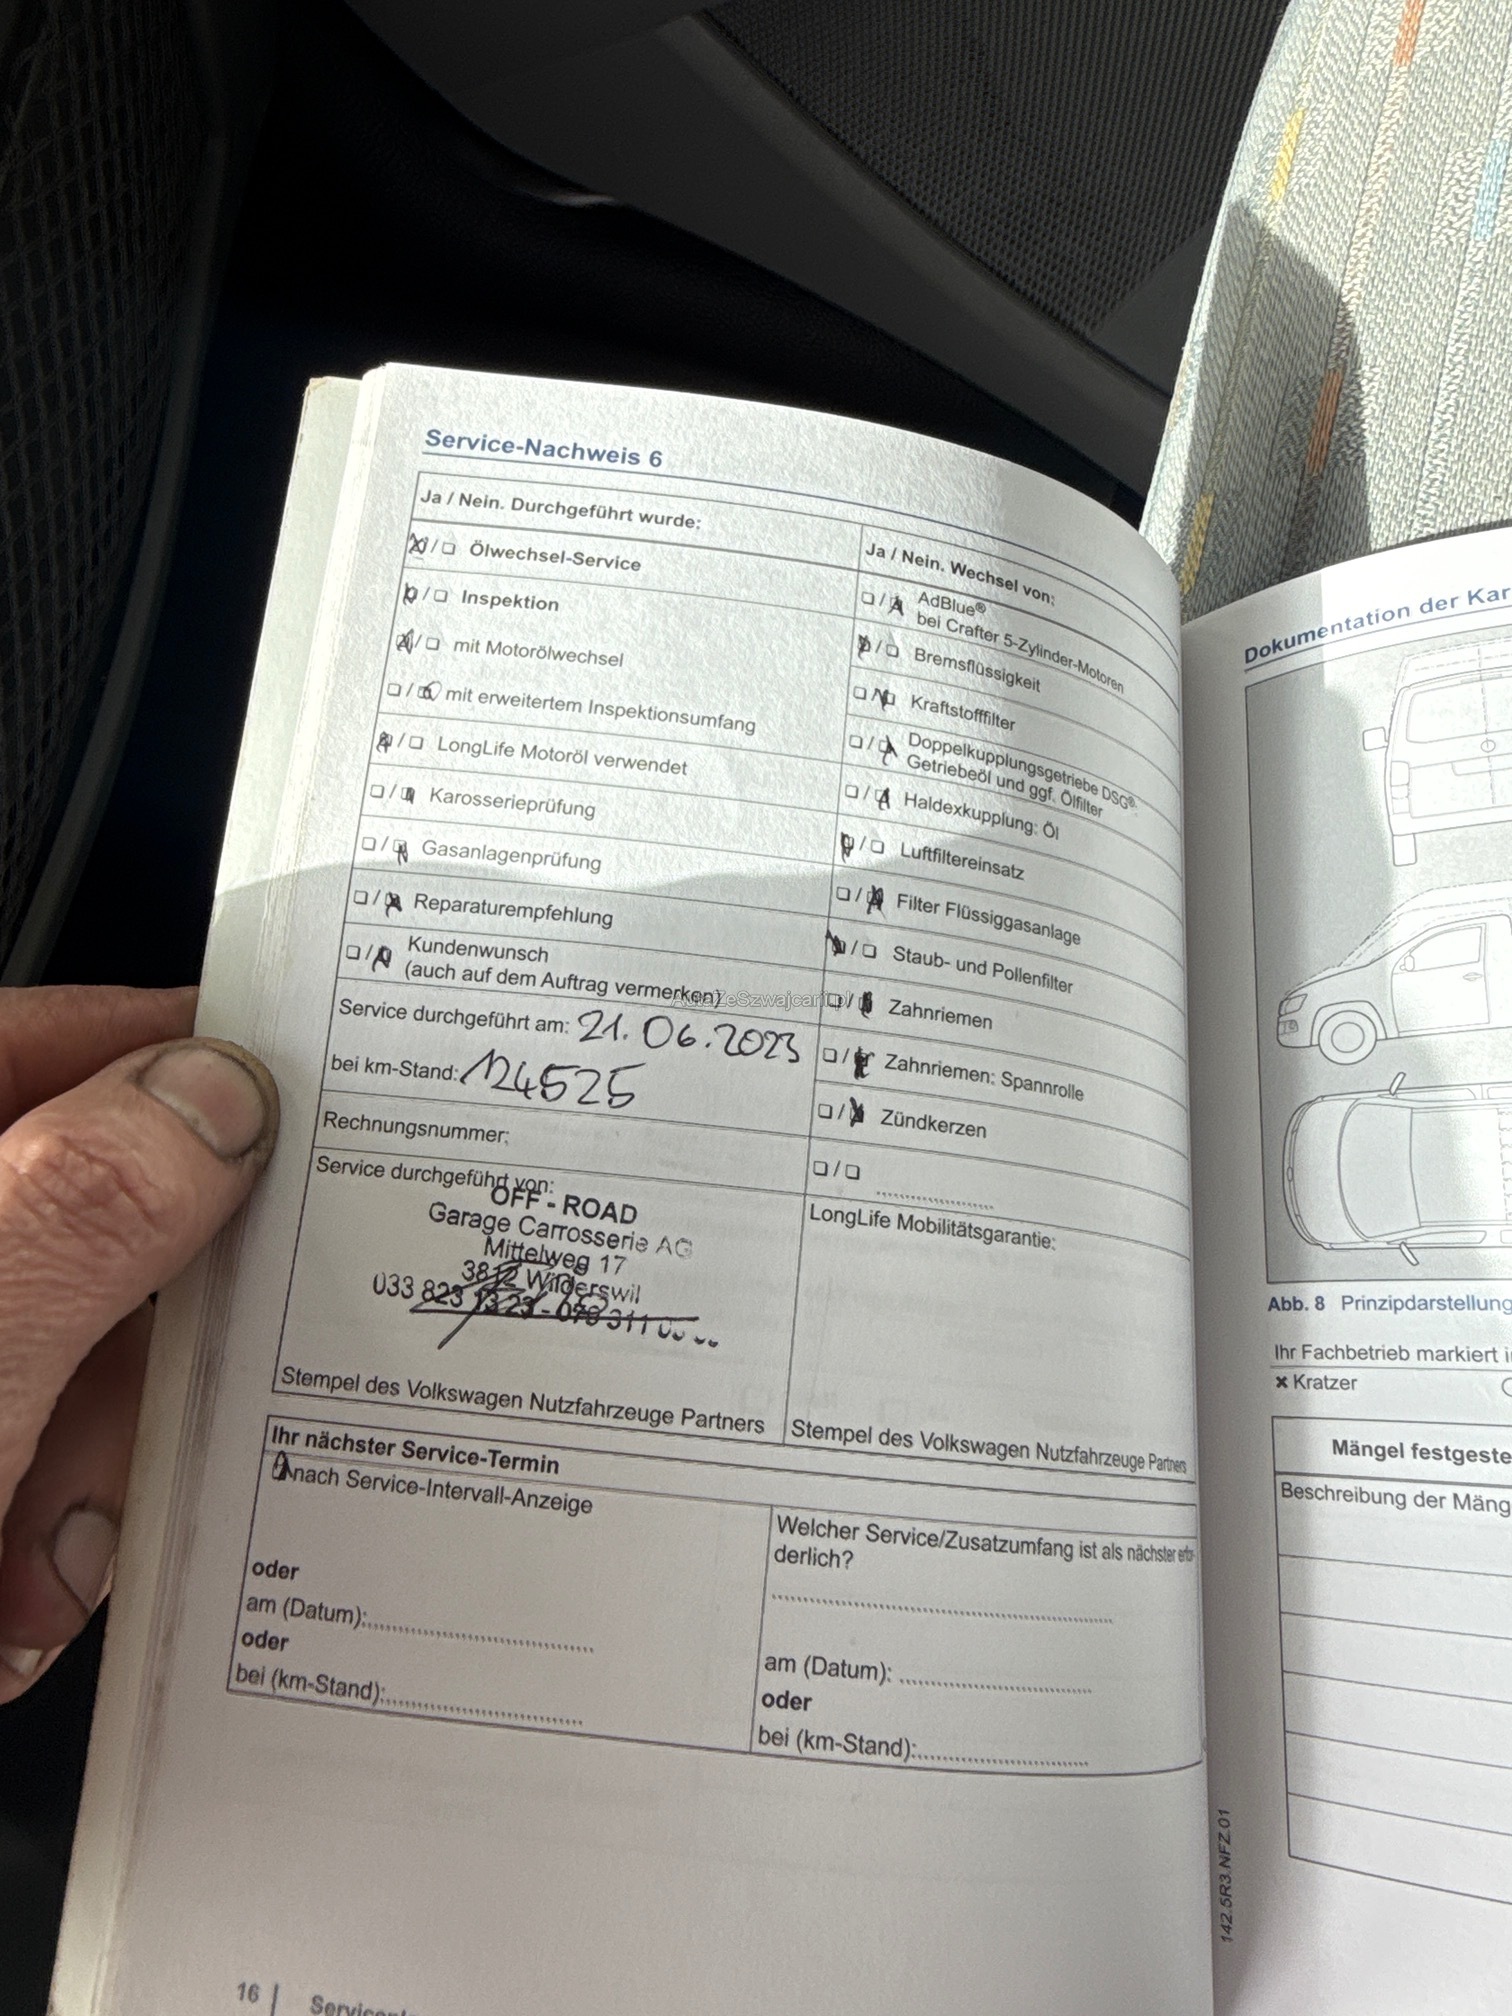 Service-Nachweis 6
Ja / Nein. Durchgeführt wurde:
Ölwechsel-Service
Inspektion
mit Motorölwechsel
mit erweitertem Inspektionsumfang
LongLife Motoröl verwendet
Karosserieprüfung
Gasanlagenprüfung
Reparaturempfehlung
Kundenwunsch
(auch auf dem Auftrag vermerken)
Service durchgeführt am: 21.06.2023
bei km-Stand: 124525
Rechnungsnummer:
Service durchgeführt von:
OFF - ROAD
Garage Carrosserie AG
Mittelweg 17
3812 Wilderswil
033 823 13 23 - 079 311
Stempel des Volkswagen Nutzfahrzeuge Partners
Ja / Nein. Wechsel von:
AdBlue®
bei Crafter 5-Zylinder-Motoren
Bremsflüssigkeit
Kraftstofffilter
Doppelkupplungsgetriebe DSG®:
Getriebeöl und ggf. Ölfilter
Haldexkupplung: Öl
Luftfiltereinsatz
Filter Flüssiggasanlage
Staub- und Pollenfilter
Zahnriemen
Zahnriemen: Spannrolle
Zündkerzen
LongLife Mobilitätsgarantie:
Stempel des Volkswagen Nutzfahrzeuge Partners
Ihr nächster Service-Termin
nach Service-Intervall-Anzeige
oder
am (Datum):
oder
bei (km-Stand):
Welcher Service/Zusatzumfang ist als nächster erfor-
derlich?
am (Datum):
oder
bei (km-Stand):
16
AutaZeSzwajcarii.pl
142.5R3.NFZ.01
Dokumentation der Kar
Abb. 8 Prinzipdarstellung
Ihr Fachbetrieb markiert i
x Kratzer
Mängel festgeste
Beschreibung der Mäng